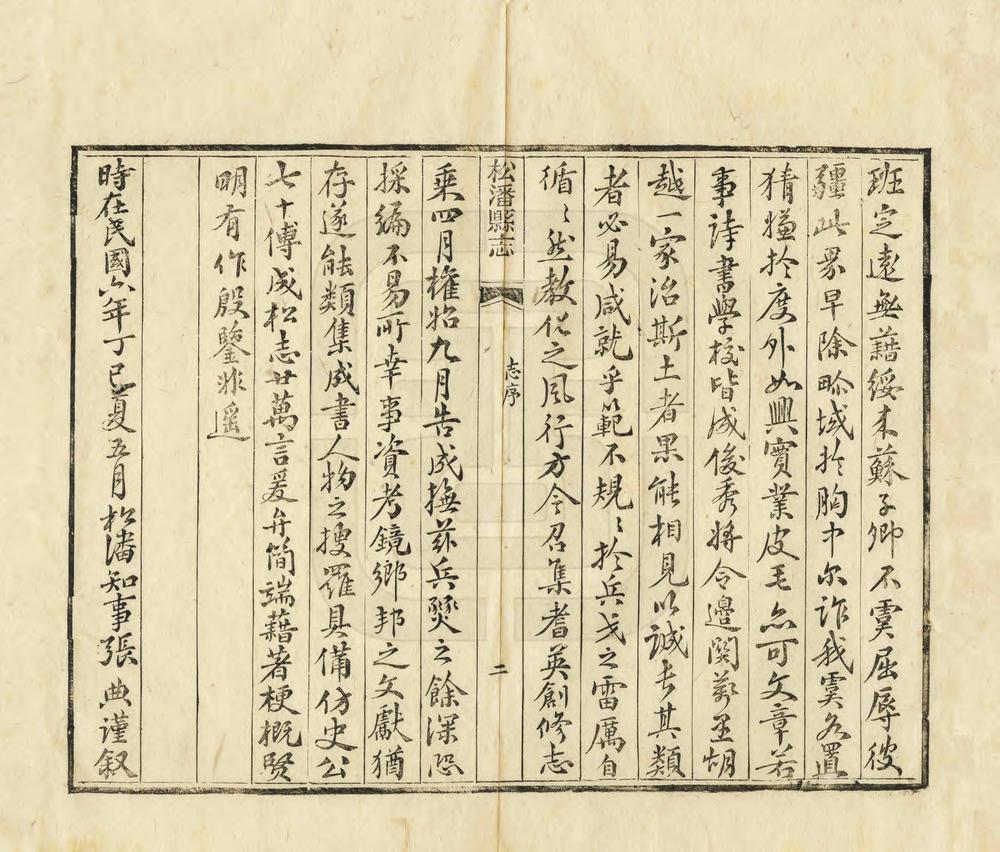 班定遠無藉綏來蘇子卿不虞屈辱彼
疆此界早除畛域於胸中尔詐我虞久置
猜嫌於度外如興實業皮毛亦可文章若
事詩書學校皆成俊秀將令邊關萬里胡
越一家治斯土者果能相見以誠去其類
者必易咸就乎範不規〻於兵戎之雷厲自
循〻然教化之風行方今召集耆英創修志
松潘縣志
志序
二
乘四月權始九月告成撫茲兵燹之餘深恐
採編不易所幸事資考鏡鄉邦之文獻猶
存遂能類集成書人物之搜羅具備仿史公
七十傳成松志廿萬言爰弁簡端藉著梗概賢
明有作殷鑒非遥
時在民國六年丁巳夏五月松潘知事張典謹叙